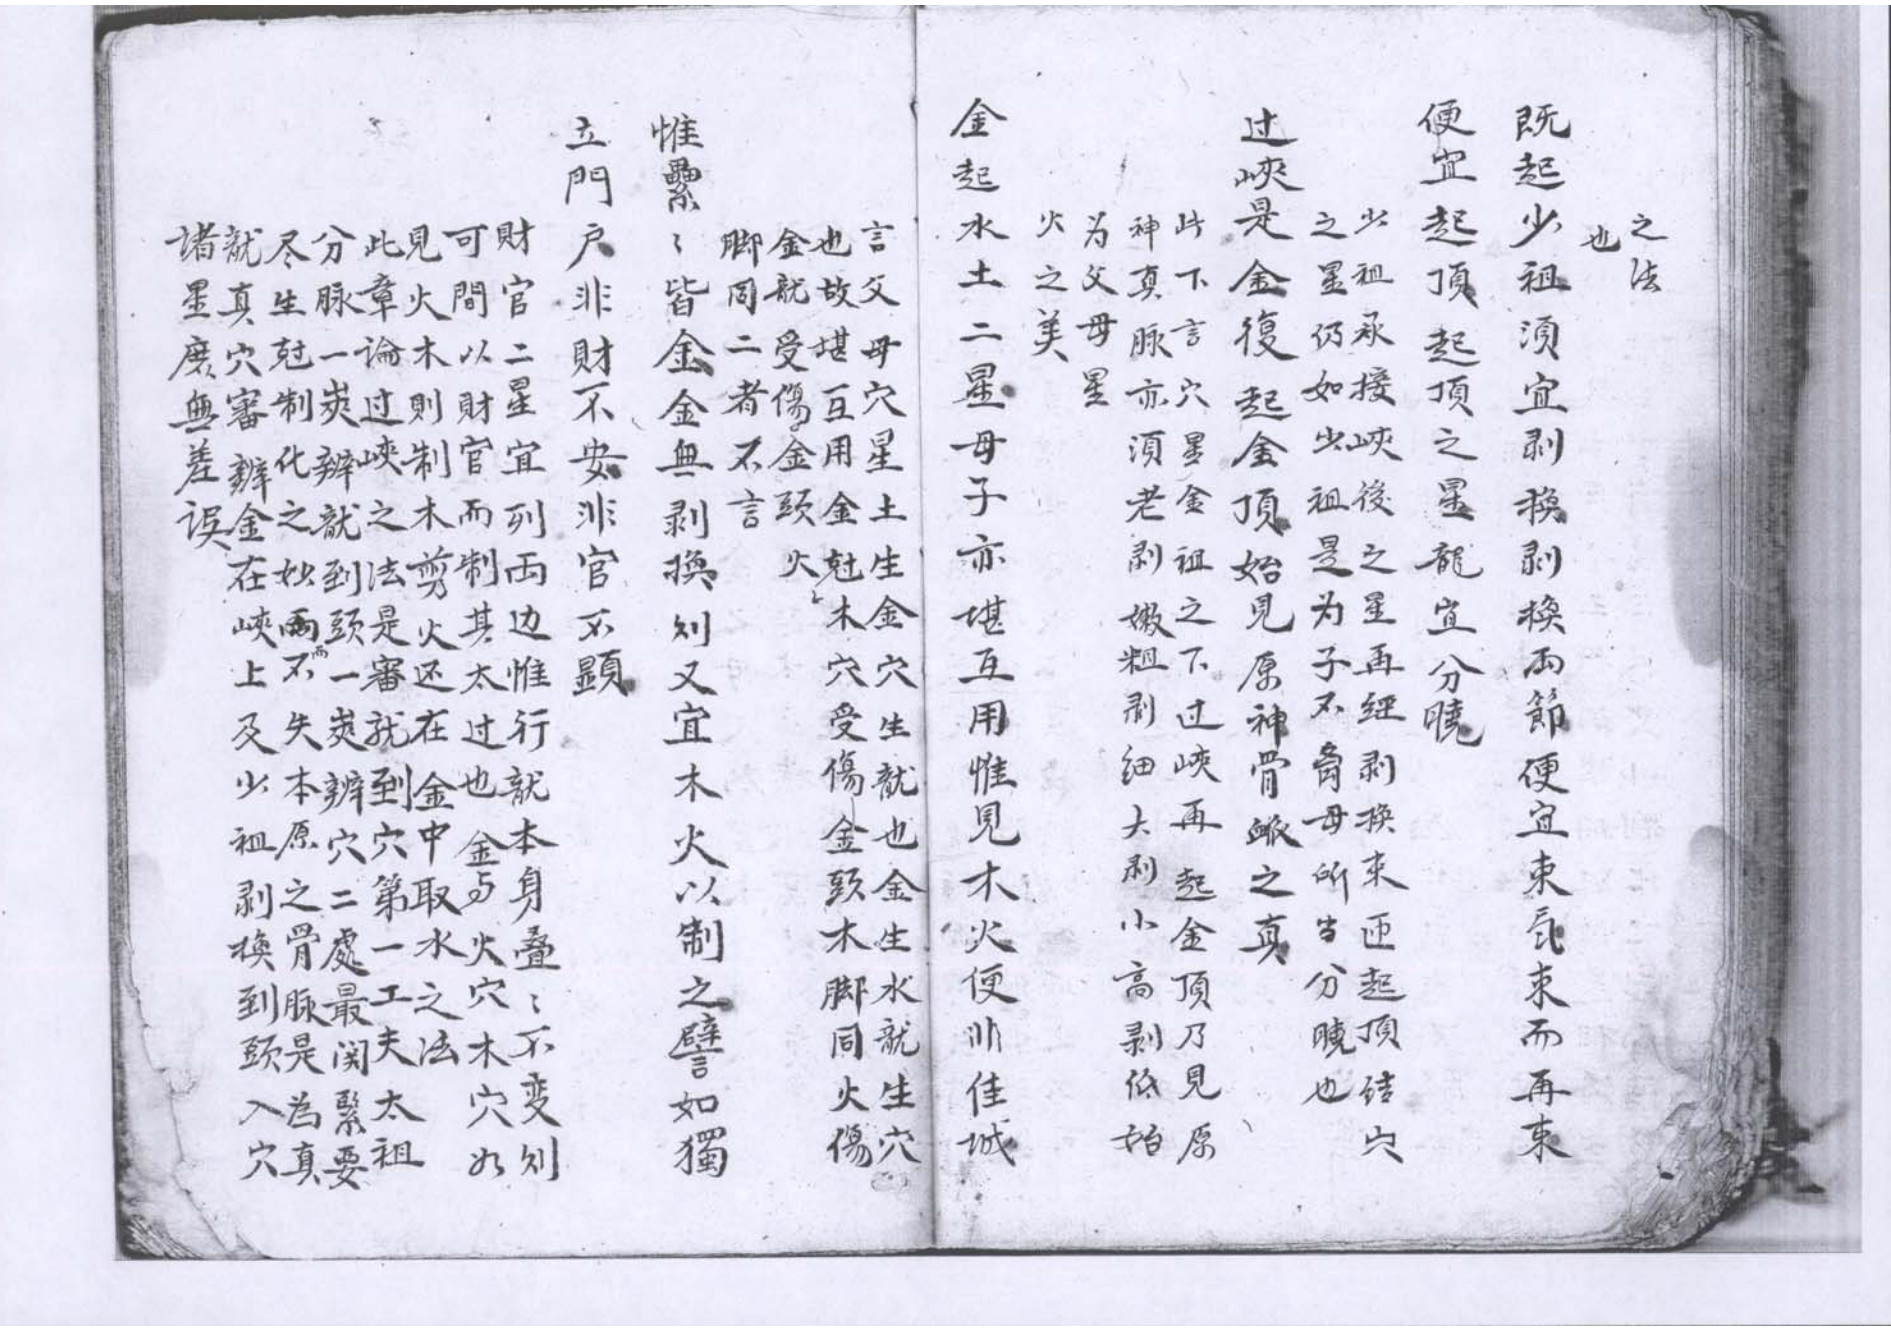 之法
也
既起少祖須宜剥換剥換兩節便宜束氣束而再束
便宜起頂起頂之星龍宜分曉
少祖承接峽後之星再經剥換束迊起頂结穴
之星仍如少祖是为子不肖母所当分曉也
过峽是金復起金頂始見原神骨脉之真
此下言穴星金祖之下过峽再起金頂乃見原
神真脉亦須老剥嫩粗剥細大剥小高剥低始
为父母星
火之美
金起水土二星母子亦堪互用惟見木火便非佳城
言父母穴星土生金穴生龍也金生水龍生穴
也故堪互用金尅木穴受傷金頭木脚同火傷
金龍受傷金頭火
脚同二者不言
惟纍〻皆金金無剥換则又宜木火以制之譬如獨
立門户非財不安非官不顯
財官二星宜列両边惟行龍本身叠〻不变则
可間以財官而制其太过也金与火穴木穴如
見火木則制木剪火还在金中取水之法
此章論过峽之法是審龍到穴第一工夫太祖
分脉一炭辨龍到頭一炭辨穴二處最関緊要
尽生尅制化之妙而不失本原之骨脉是為真
龍真穴審辨金在峽上及少祖剥換到頭入穴
諸星庶無差误